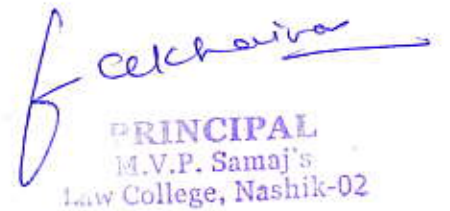 PRINCIPAL
M.V.P. Samaj's
Law College, Nashik-02